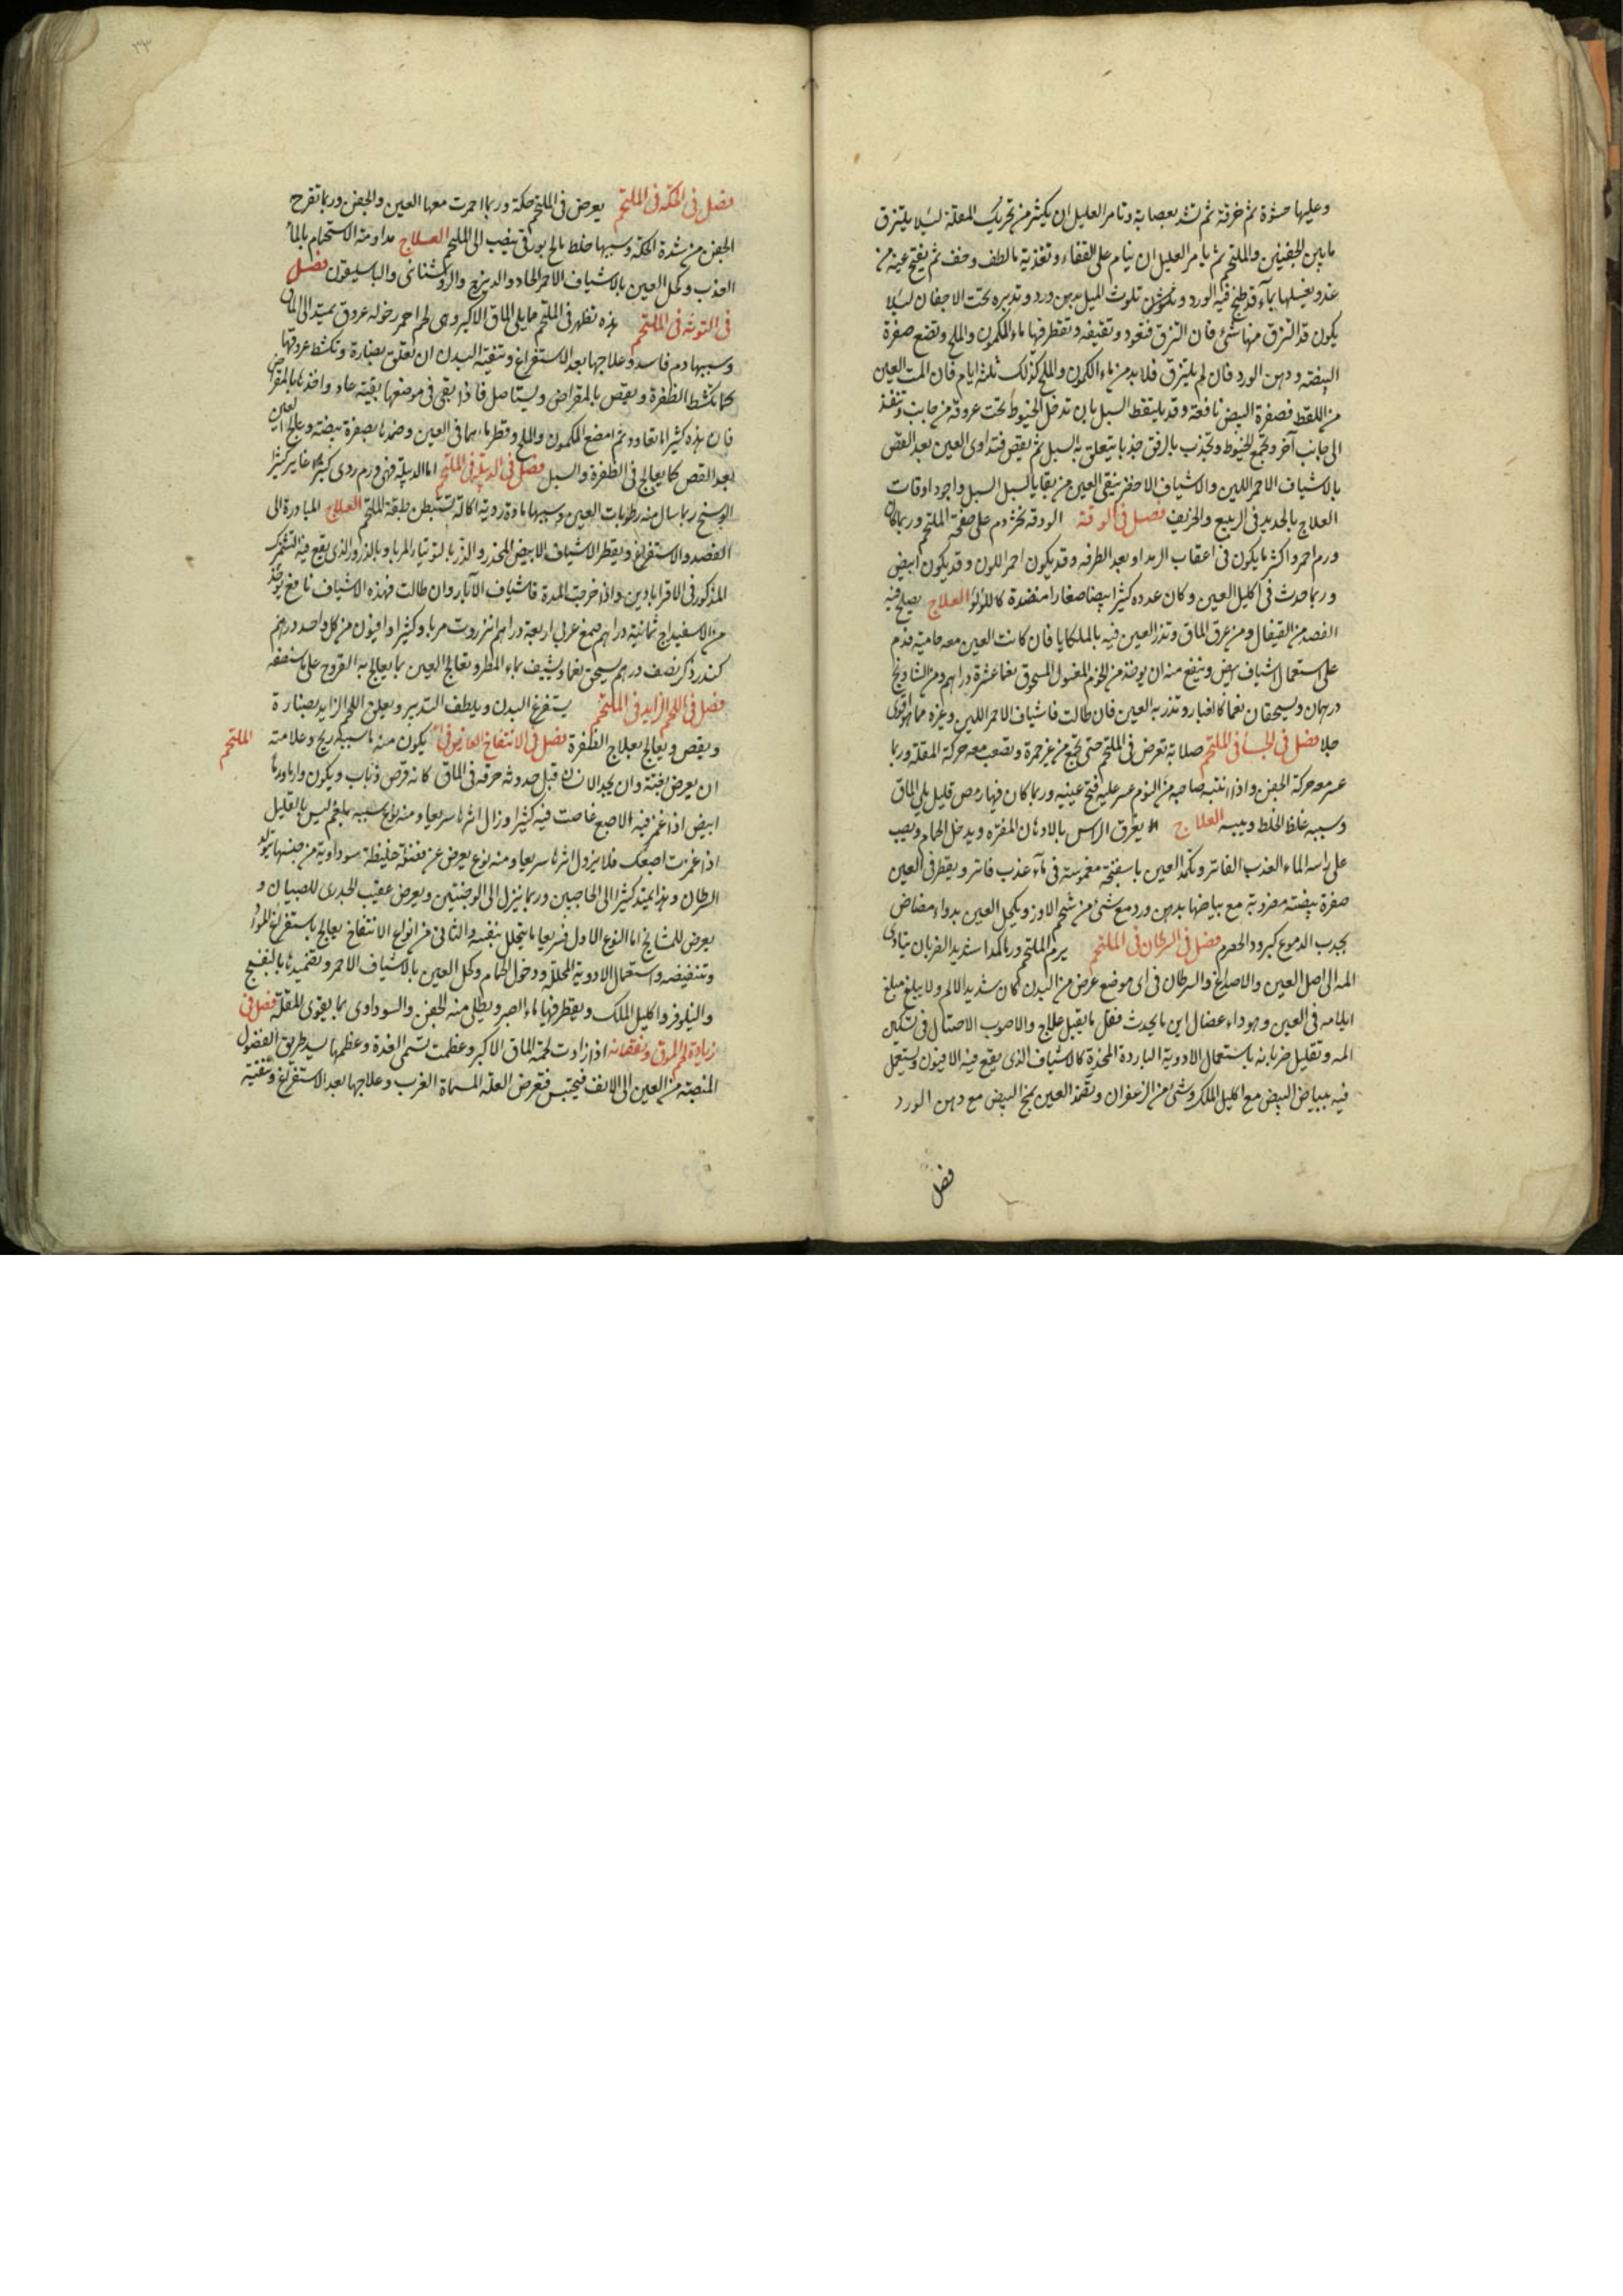 وعليها حشوة ثم خرقة ثم تشد بعصابة وتامر العليل ان يكثر من تحريك المقلة لئلا يلتزق
ما بين الجفنين والملتحم ثم يامر العليل ان ينام على القفاء وتغذيه بما لطف وخف ثم يفتح عينه من
غد ويغسلها بماء قد طبخ فيه الورد وتلوث الميل بدهن ورد وتديره تحت الاجفان لئلا
يكون قد التزق منها شئ فان التزق فتعود وتقطر فها ماء الكمون والملح وتضع صفرة
البيضة ودهن الورد فان لم يلتزق فلا بد من ماء الكمون والملح كذلك ثلثة ايام فان المت العين
من اللقط فصفرة البيض نافعة وقد يلتقط السبل بان تدخل الخيوط تحت عروقه من جانب وتنفذ
الى جانب آخر وتجمع الخيوط وتجذب بالرفق جذبا يتعلق به السبل ثم يقص فتداوى العين بعد القص
بالاشياف الاحمر اللين والاشياف الاخضر ينقى العين من بقايا السبل السبل واجود اوقات
العلاج بالحديد فى الربيع والخريف فصل فى الودقة الودقه تخثر دم على صفحة الملتحم وربما كان
ورم احمر واكثر ما يكون فى اعقاب الرمد او بعد الطرفه وقد يكون احمر اللون وقد يكون ابيض
وربما حدث فى اكليل العين وكان عدده كثيرا بيضا صغارا منضدة كاللؤلؤ العلاج يصلح فيه
الفصد من القيفال ومن عرق الماق وتذر العين فيه بالملكايا فان كانت العين معه حامية فدم
على استعمال اشياف ابيض وينفع منه ان يوخذ من المغسول المسحوق نعما عشرة دراهم ومن الشادنج
درهمان ويسحقان نعما كالغبار وتذر به العين فان طالت فاشياف الاحمر اللين وغيره مما هو اقوى
جلا فصل فى الجسا فى الملتحم صلابة تعرض فى الملتحم حتى تجمع من غير حمرة وتصعب معه حركة المقلة وربما
عسر معه حركة الجفن واذا انتبه صاحبه من النوم عسر عليه فتح عينيه وربما كان فيها رمص قليل يلى الماق
وسببه غلظ الخلط ويبسه العلاج يغرق الراس بالادهان المفتره ويدخل الحمام ويصب
على راسه الماء العذب الفاتر وتكمد العين باسفنجة مغموسة فى ماء عذب فاتر ويقطر فى العين
صفرة بيضته مضروبة مع بياضها بدهن ورد مع شئ من شحم الاوز ويكحل العين بدواء مضاض
يجذب الدموع كبرود الحصرم فصل فى السرطان فى الملتحم يرم الملتحم ورما كمدا شديد الضربان يتادى
المه الى اصل العين والاصداغ والسرطان فى اى موضع عرض من البدن كان شديد الالم ولا يبلغ مبلغ
ايلامه فى العين وهو داء عضال اين ما يحدث فقل ما يقبل علاج والاصوب الاحتيال فى تسكين
المه وتقليل ضربانه باستعمال الادوية الباردة المخدرة كالاشياف الذى يقع فيه الافيون ويستعمل
فيه ببياض البيض مع اكليل الملك وشئ من الزعفران وتضمد العين بمخ البيض مع دهن الورد
فصل
٣٣
فصل فى الحكة فى الملتحم يعرض فى الملتحم حكة وربما احمرت معها العين والجفن وربما تقرح
الجفن من شدة الحكة وسببها خلط مالح بورقى ينصب الى الملتحم العلاج مداومة الاستحمام بالماء
العذب وكحل العين بالاشياف الاحمر الحاد والديزج والروشنائى والباسليقون فصل
فى التوثه فى الملتحم هذه تظهر فى الملتحم مما يلى الماق الاكبر وهى لحم احمر رخو له عروق يمتد الى الماق
وسببها دم فاسد وعلاجها بعد الاستفراغ وتنقية البدن ان تعلق بصنارة وتكشط عروقها
كما تكشط الظفرة ويقص بالمقراض ويستاصل فاذا بقى فى موضعها بقية عاد واخذها بالمقراض
فان هذه كثيرا ما تعاود ثم امضغ الكمون والملح وقطر ماءهما فى العين وضمدها بصفرة بيضة وعالج العين
بعد القص كما يعالج فى الظفرة والسبل فصل فى الدبيلة فى الملتحم اما الدبيلة فهى ورم ردى كبير غاير كثير
الوسخ ربما سال منه رطوبات العين وسببها مادة ردية اكالة تستبطن طبقة الملتحم العلاج المبادرة الى
الفصد والاستفراغ ويقطر الاشياف الابيض المخدر والذر بالتوتياء المربا وبالذرور الذى يقع فيه
المذكور فى الاقراباذين واذا خرجت المدة فاشياف الآبار وان طالت فهذه الاشياف نافع يؤخذ
من الاسفيداج ثمانية دراهم صمغ عربى اربعة دراهم انزروت مربا وكثيرا وافيون من كل واحد درهم
كندر ذكر نصف درهم يسحق نعما ويشيف بماء المطر وتعالج العين بما يعالج به القروح على ما سنصفه
فصل فى اللحم الزايد فى الملتحم يستفرغ البدن ويلطف التدبير ويعلق اللحم الزايد بصنارة
ويقص ويعالج بعلاج الظفرة فصل فى الانتفاخ العارض فى الملتحم يكون منه ما سببه ريح وعلامته
ان يعرض بغتة وان يجد الانسان قبل حدوثه حرقه فى الماق كانه قرص ذباب ويكون
ابيض اذا غمز فيه الاصبع غاصت فيه كثيرا وزال اثرها سريعا ومنه نوع سببه بلغم ليس بالقليل
اذا غمزت اصبعك فلا يزول اثرها سريعا ومنه نوع يعرض عن فضلة غليظة سوداوية من جنسها يتولد
السرطان وهذا يمتد كثيرا الى الحاجبين وربما ينزل الى الوجنتين ويعرض عقيب الجدرى للصبيان و
يعرض للمشايخ اما النوع الاول فسريعا ما يتحلل بنفسه والثانى من انواع الانتفاخ يعالج باستفراغ المواد
وتنقيصه واستعمال الادوية المحللة ودخول الحمام وكحل العين بالاشياف الاحمر وتضميدها بالبنفسج
والنيلوفر واكليل الملك ويقطر فيها ماء الصبر ويطلى منه الجفن والسوداوى بما يقوى المقلة فصل فى
زيادة لحم الموق ونقصانه اذا زادت لحمة الماق الاكبر وعظمت تسمى الغدة وعظمها يسد طريق الفضول
المنصبة من العين الى الانف فيحتبس فتعرض العلة المسماة الغرب وعلاجها بعد الاستفراغ وتنقية